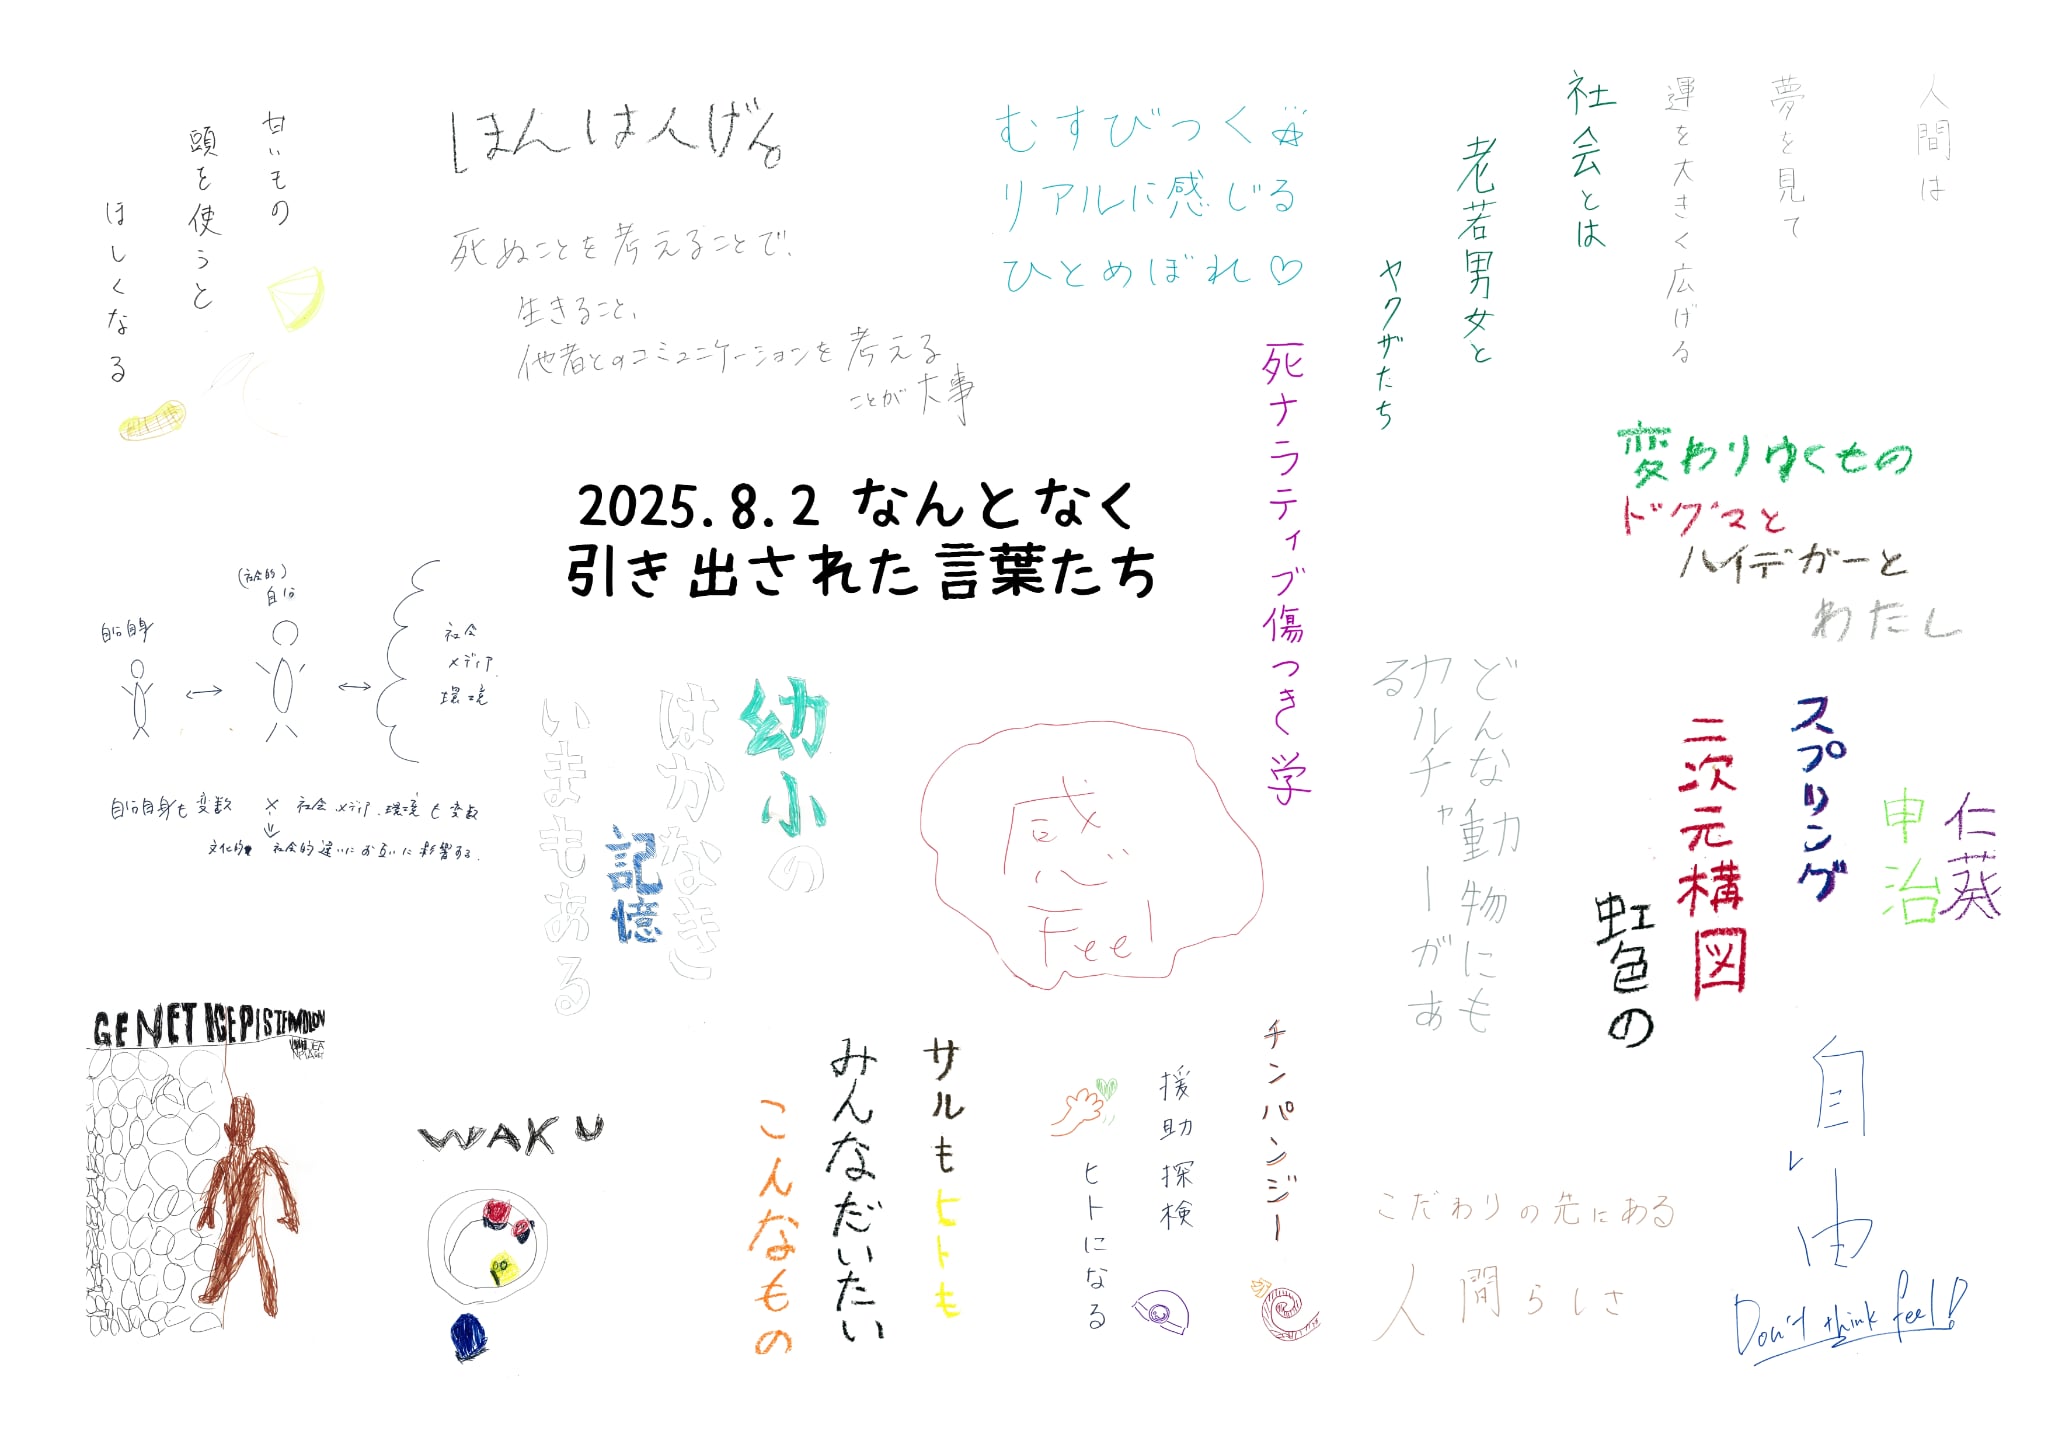 人間は
夢を見て
運を大きく広げる
社会とは
老若男女と
ヤクザたち
むすびつく☆
リアルに感じる
ひとめぼれ♡
ほんは人げん
死ぬことを考えることで、
生きること、
他者とのコミュニケーションを考える
ことが大事
甘いもの
頭を使うと
ほしくなる
2025.8.2 なんとなく
引き出された言葉たち
死ナラティブ傷つき学
変わりゆくもの
ドグマと
ハイデガーと
わたし
(社会的)
自分
自分自身
社会
メディア
環境
自分自身も変数 × 社会 メディア、環境も変数
文化的 社会的違いにお互いに影響する。
幼小の
はかなき
記憶
いまもある
感じ
Feel
どんな動物にも
カルチャーがあ
る
仁葵
申治
スプリング
二次元構図
虹色の
GENETICEPISTEMOLOV
WAKU
サルもヒトも
みんなだいたい
こんなもの
チンパンジー
援助探検
ヒトになる
こだわりの先にある
人間らしさ
自由
Don't think feel!